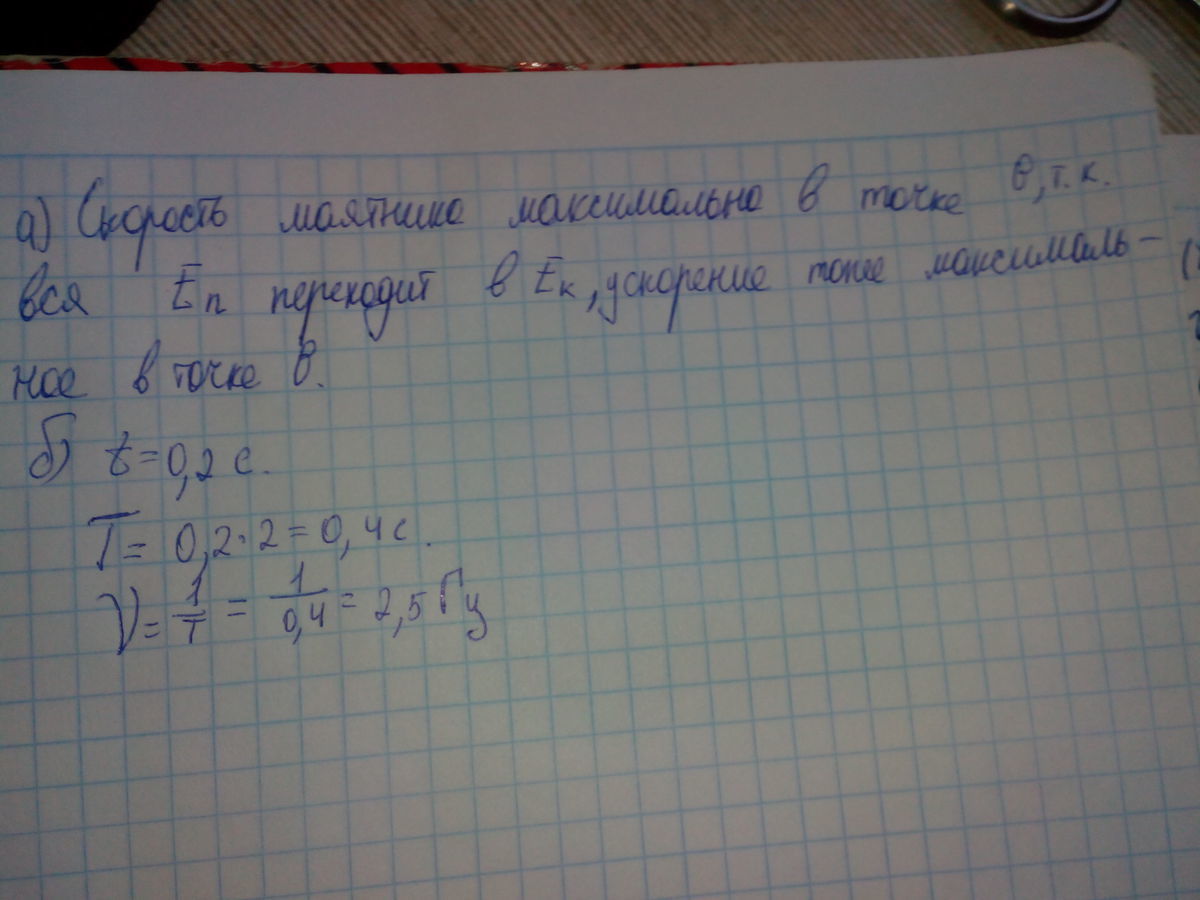 а) Скорость маятника максимальна в точке О, т.к.
вся Eп переходит в Eк, ускорение тоже максималь-
ное в точке О.
б) t=0,2 с.
T= 0,2·2=0,4с.
ν=1/T = 1/0,4 = 2,5 Гц